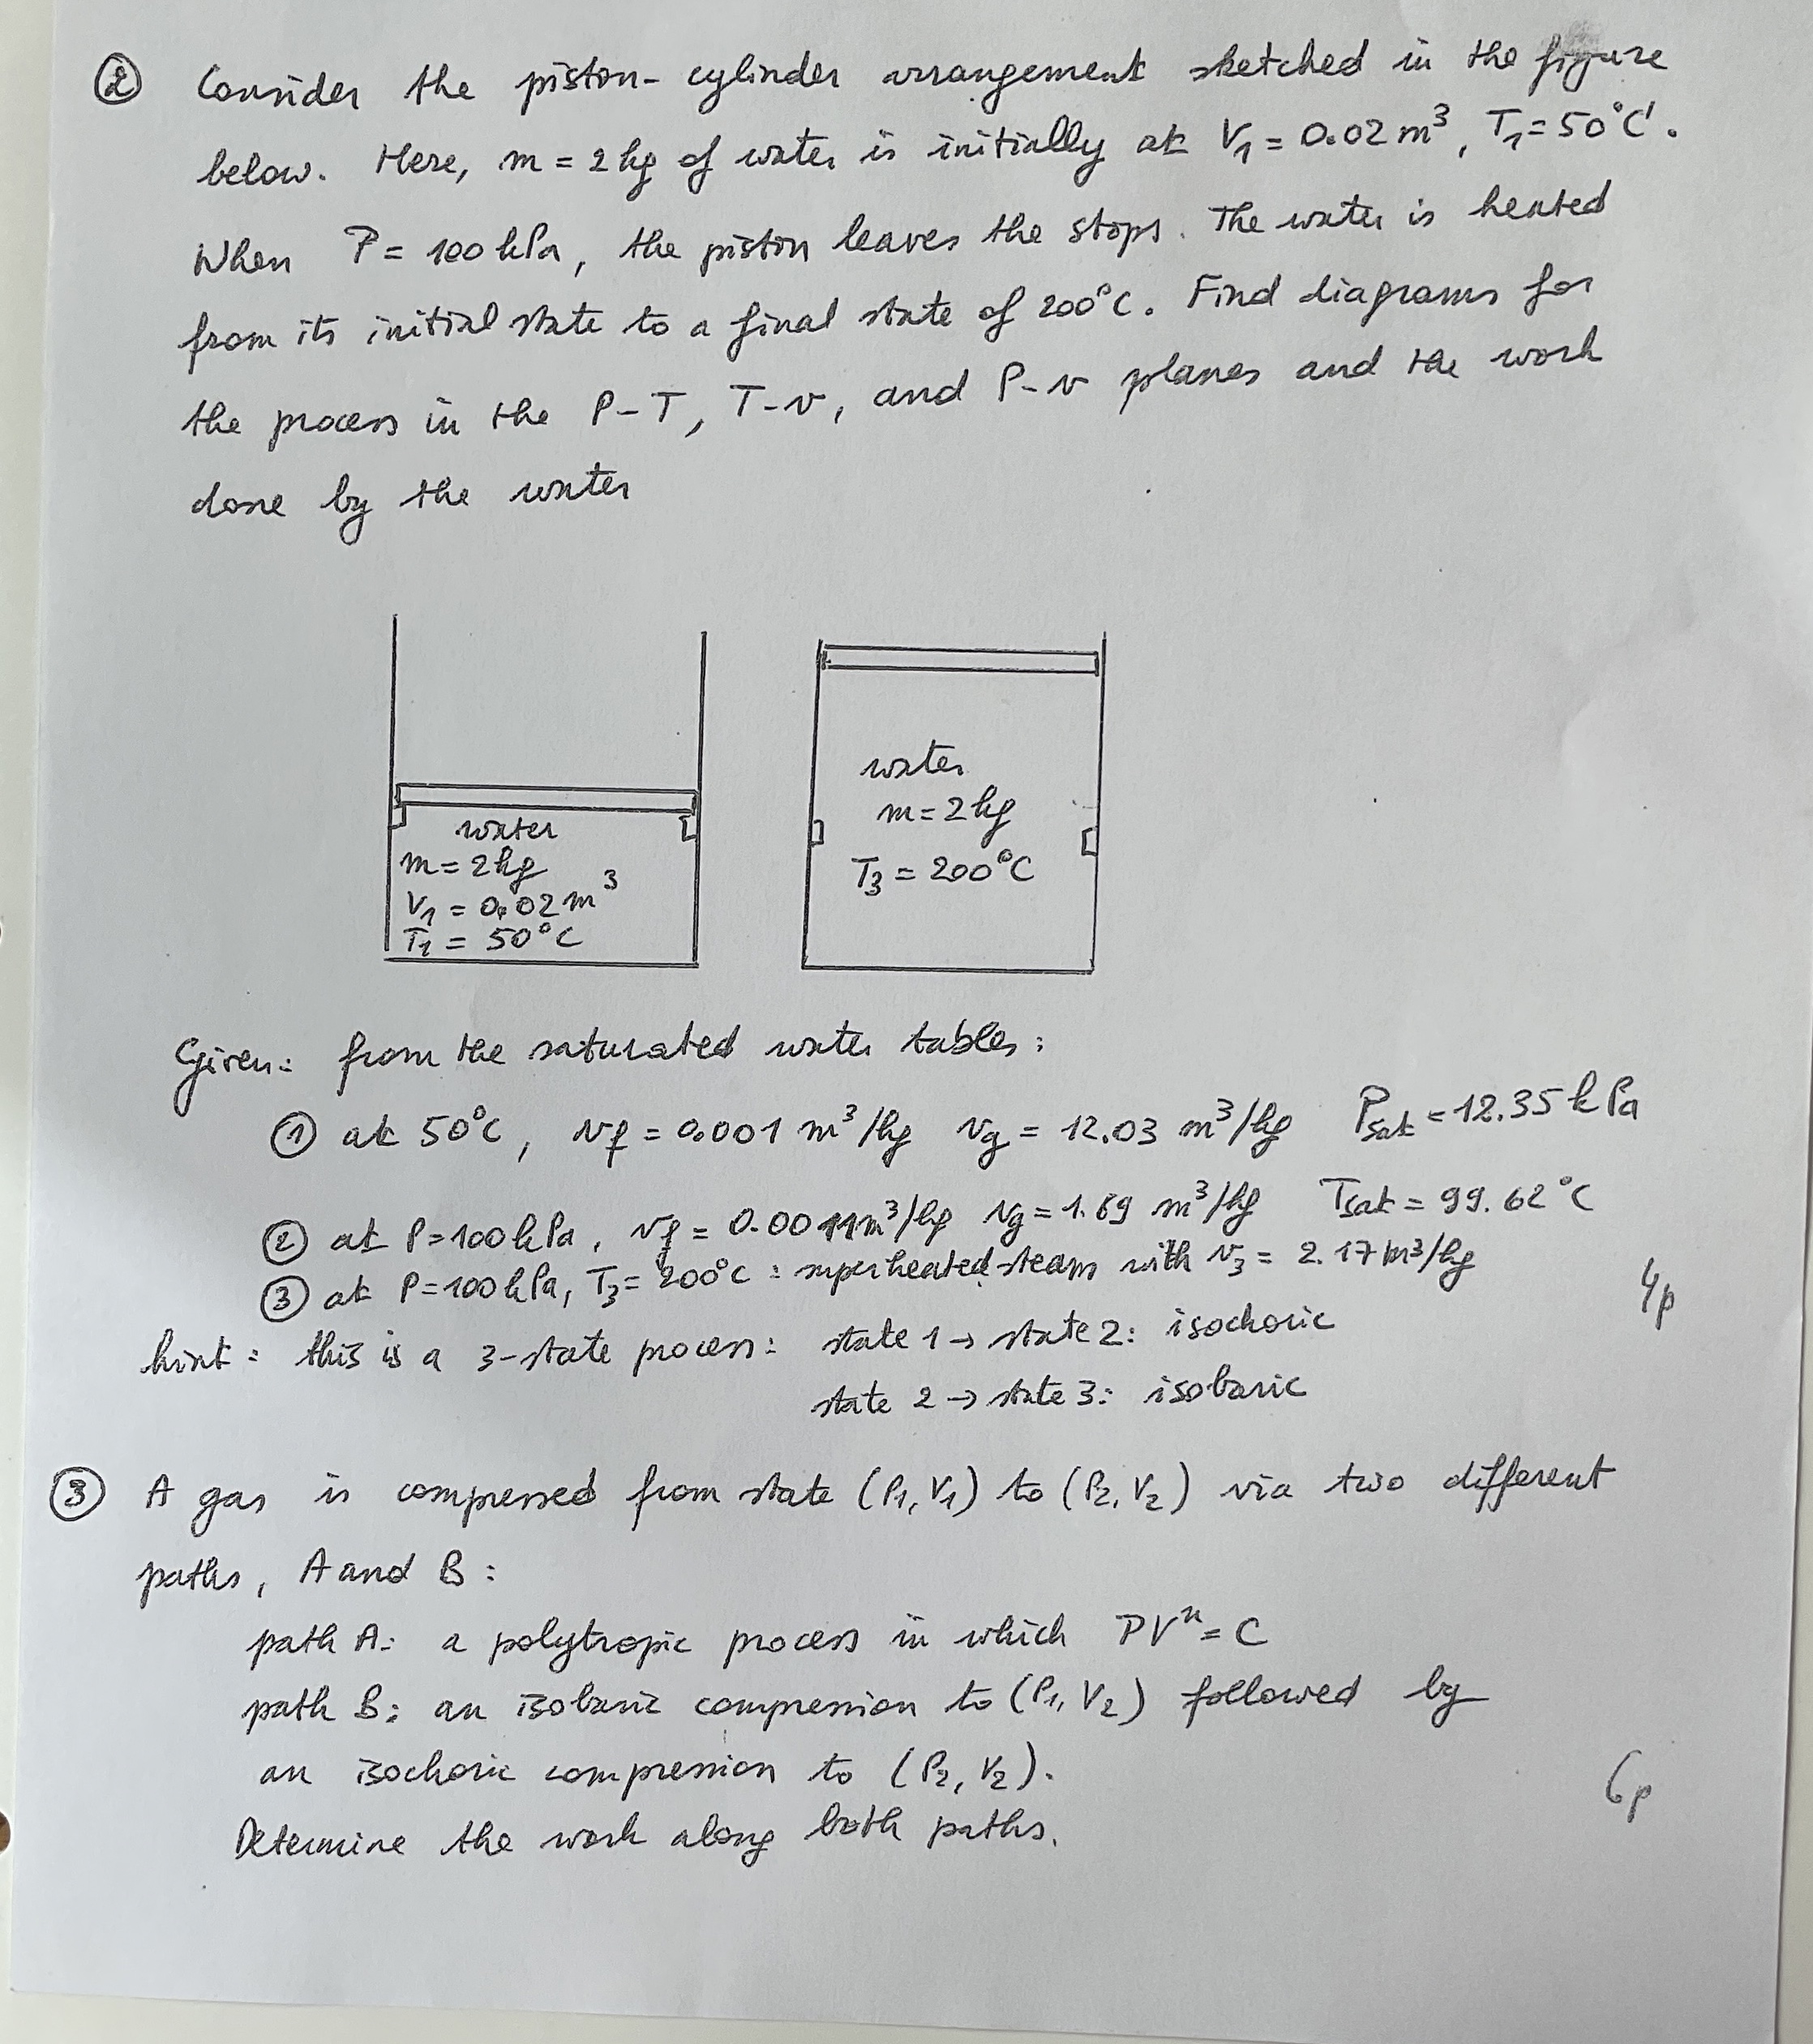 ② Consider the piston-cylinder arrangement sketched in the figure
below. Here, m = 2 kg of water is initially at V₁ = 0.02 m³, T₁ = 50°C.
When P = 100 kPa, the piston leaves the stops. The water is heated
from its initial state to a final state of 200°C. Find diagrams for
the process in the P-T, T-v, and P-v planes and the work
done by the water
water
m = 2 kg
V₁ = 0.02 m³
T₁ = 50°C
water
m = 2 kg
T₃ = 200°C
Given: from the saturated water tables:
① at 50°C, vf = 0.001 m³/kg vg = 12.03 m³/kg Psat = 12.35 kPa
② at P=100 kPa, vf = 0.0011 m³/kg vg = 1.69 m³/kg Tsat = 99.62°C
③ at P=100 kPa, T₃ = 200°C : superheated steam with v₃ = 2.17 m³/kg
4p
hint: this is a 3-state process: state 1 → state 2: isochoric
state 2 → state 3: isobaric
③ A gas is compressed from state (P₁, V₁) to (P₂, V₂) via two different
paths, A and B:
path A: a polytropic process in which PVⁿ = C
path B: an isobaric compression to (P₁, V₂) followed by
an isochoric compression to (P₂, V₂).
6p
Determine the work along both paths.